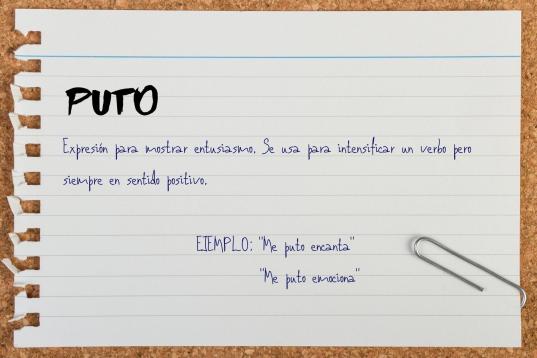 PUTO
Expresión para mostrar entusiasmo. Se usa para intensificar un verbo pero
siempre en sentido positivo.
EJEMPLO: "Me puto encanta"
"Me puto emociona"